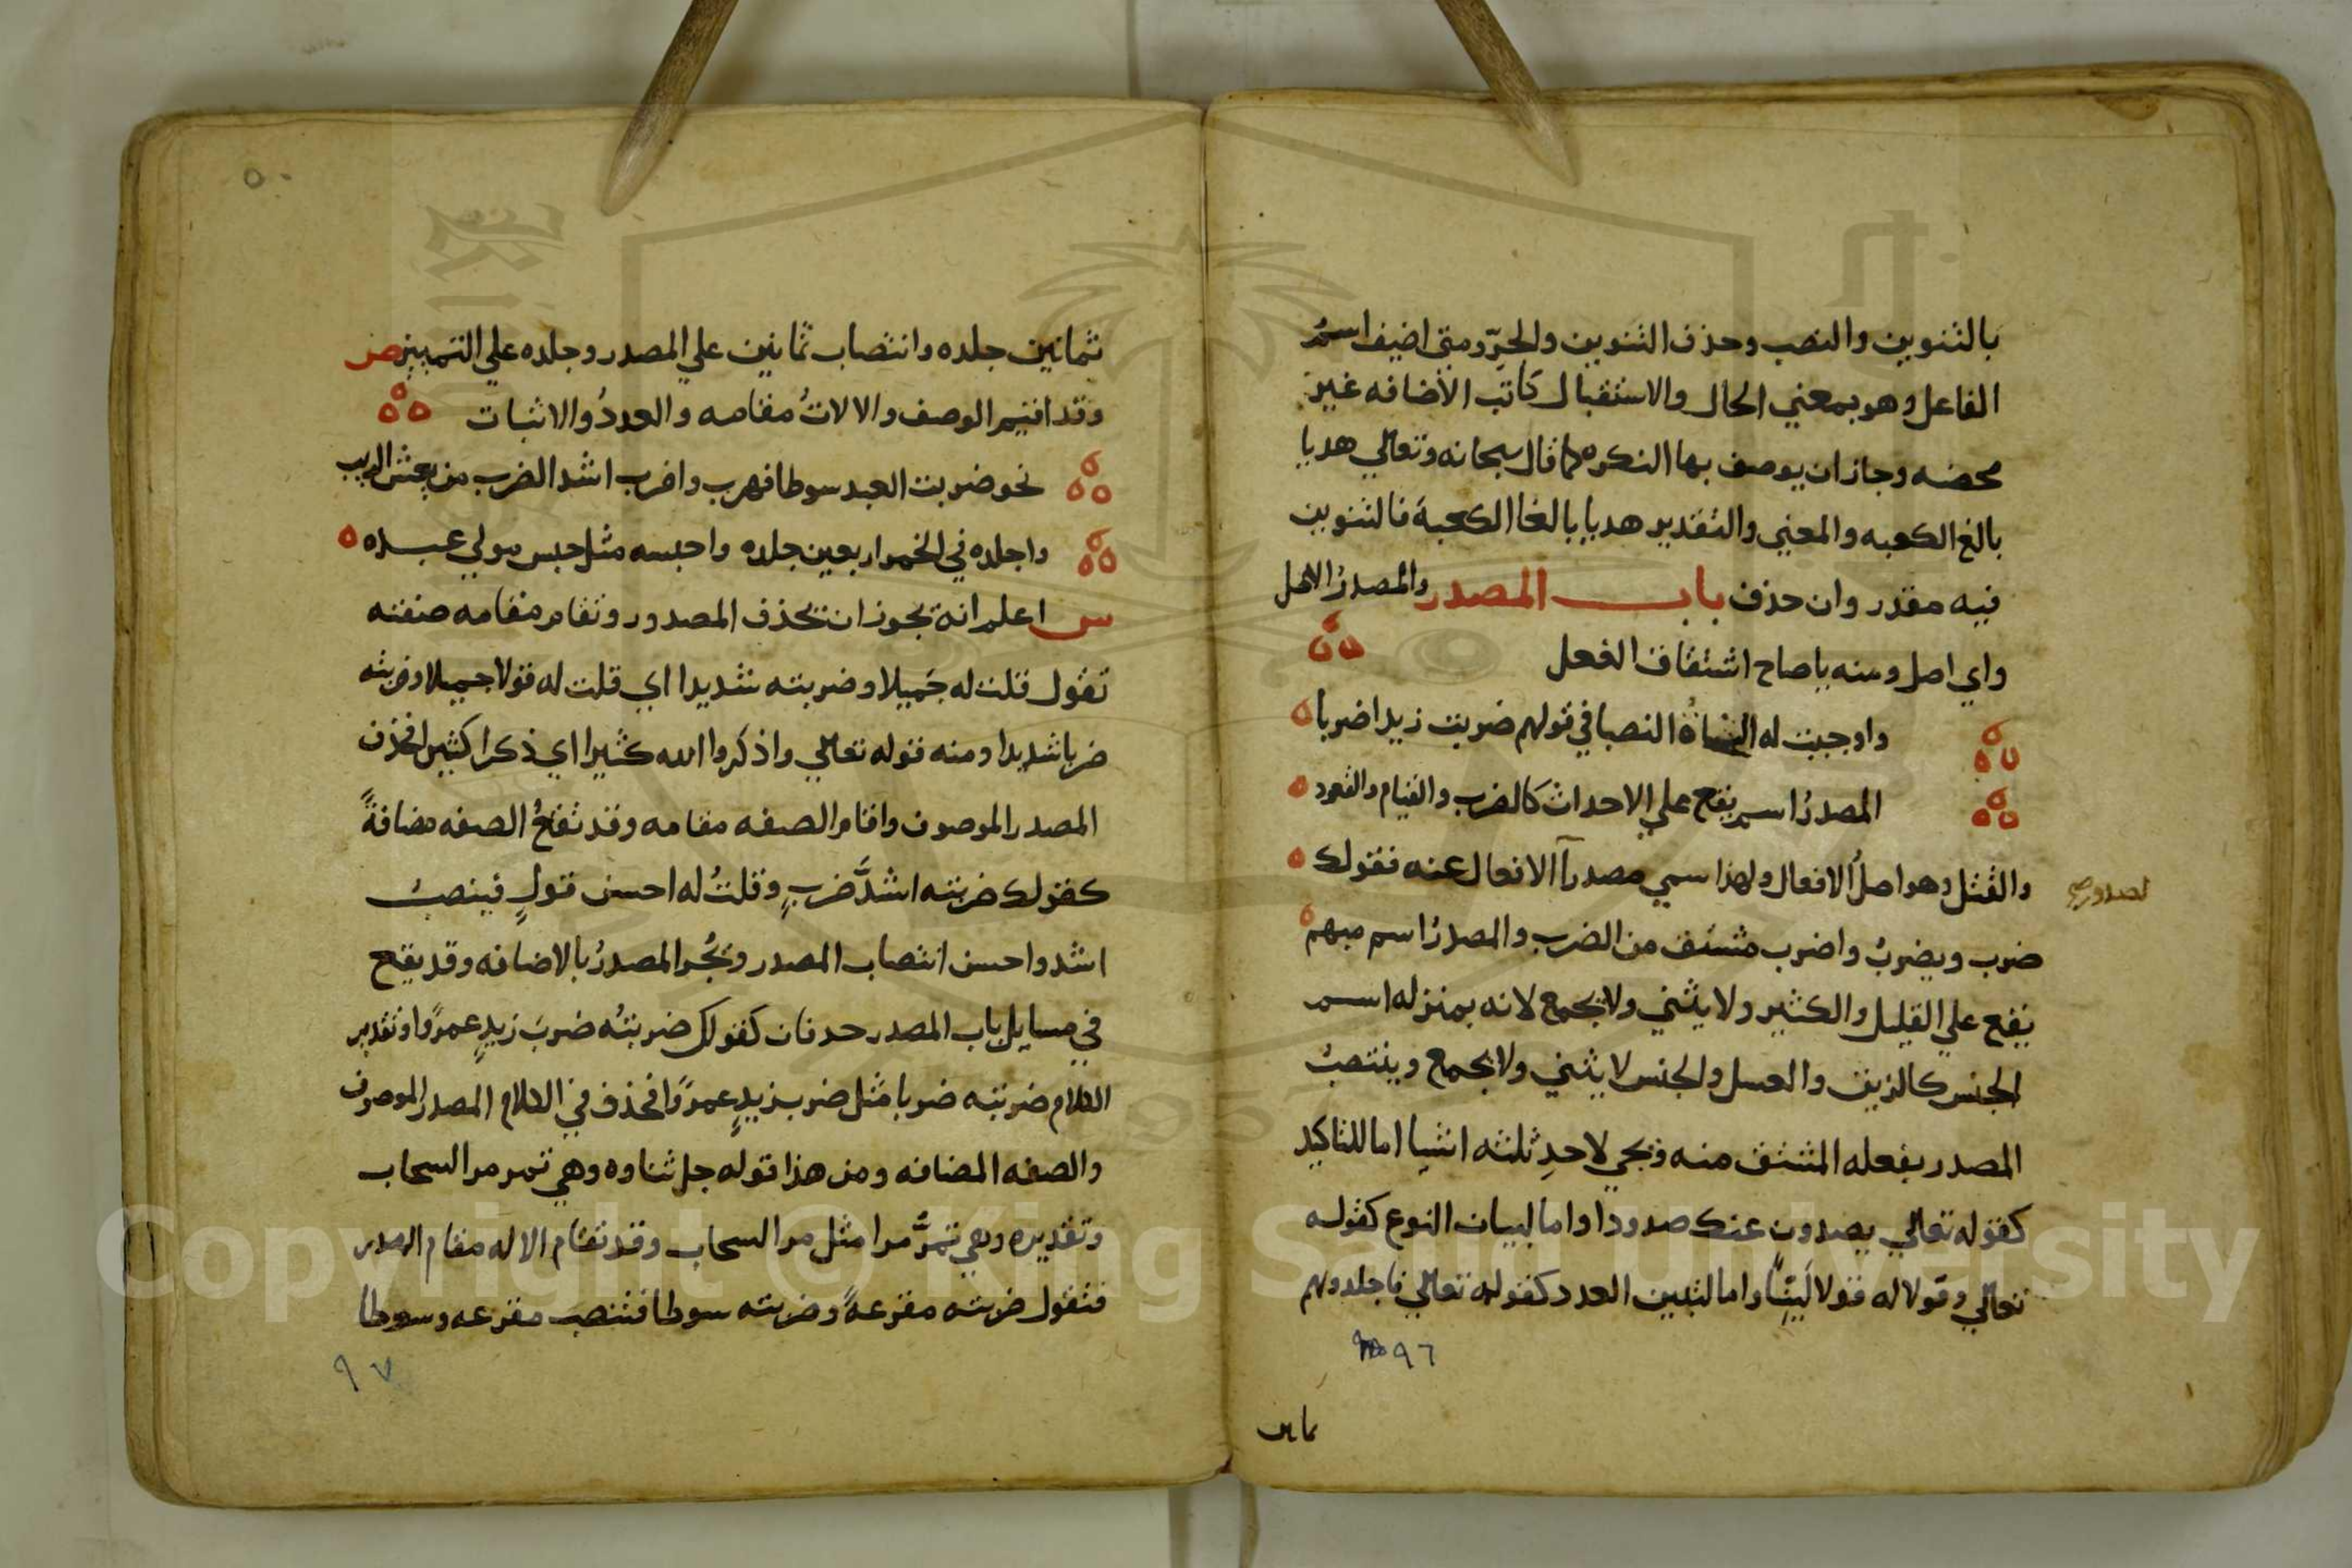 بالتنوين والنصب وحذف التنوين والجرّ ومتي اضيف اسمُ
الفاعل وهو بمعني الحال والاستقبال كانت الاضافه غير
محضه وجاز ان يوصف بها النكره كما قال سبحانه وتعالي هديا
بالغ الكعبه والمعني والتقدير هديا بالغا الكعبة فالتنوين
فيه مقدر وان حذف باب المصدر والمصدرُ الاصل
واي اصل ومنه ياصاح اشتقاق الفعل
واوجبت له النحاةُ النصبا في قولهم ضربت زيدا ضربا
المصدرُ اسم يقع علي الاحداث كالضرب والقيام والقعود
والقتل وهو اصلُ الافعال ولهذا سمي مصدراً الافعال عنه فقولك
لصدور صح
ضرب ويضربُ واضرب مشتق من الضرب والمصدرُ اسم مبهم
يقع علي القليل والكثير ولا يثني ولا يجمع لانه بمنزله اسم
الجنس كالزيت والعسل والجنس لا يثني ولا يجمع وينتصبُ
المصدر بفعله المشتق منه ويجي لاحدِ ثلثه اشيا اما للتاكيد
كقوله تعالي يصدون عنك صدودا واما لبيان النوع كقوله
تعالي وقولا له قولا لَيّنًا واما لتبين العدد كقوله تعالي فاجلدوهم
٩٦
ثماين
٥٠
ثمانين جلده وانتصاب ثمانين علي المصدر وجلده علي التمييز ص
وقد اقيم الوصف والالاتُ مقامه والعددُ والاثبات
نحو ضربت العبد سوطا فهرب واضرب اشد الضرب من يغشى الريب
واجلده في الخمر اربعين جلده واحبسه مثل حبس مولي عبده
س اعلم انه يجوز ان تحذف المصدور وتقام مقامه صفته
تقول قلت له جَميلا وضربته شديدا اي قلت له قولا جميلا وضربته
ضربا شديدا ومنه قوله تعالي واذكروا الله كثيرا اي ذكرا كثيرا فحذف
المصدر الموصوف واقام الصفه مقامه وقد تقعُ الصفه مضافةً
كقولك ضربته اشدَّ ضربٍ وقلتُ له احسن قولٍ فينصبُ
اشد واحسن انتصاب المصدر ويُجر المصدرُ بالاضافه وقد يقع
في مسايل باب المصدر حدفان كقولك ضربتُه ضربَ زيدٍ عمرًوا وتقدير
الكلام ضربته ضربا مثل ضرب زيدٍ عمرًوا فحذف في الكلام المصدر الموصوف
والصفه المضافه ومن هذا قوله جل ثناوه وهي تمر مر السحاب
وتقديره وهي تمرُّ مرا مثل مر السحاب وقد تقام الاله مقام المصدر
فتقول ضربته مقرعهً وضربته سوطا فتنصب مقرعه وسوطا
٩٧
Copyright © King Saud University